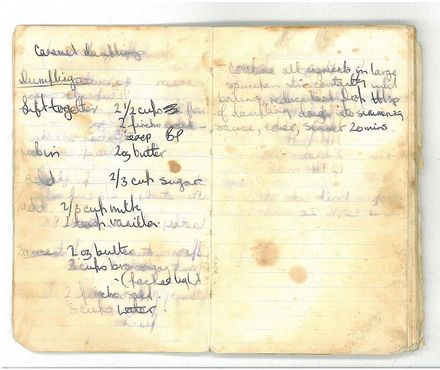 Caramel dumplings
Dumplings
Sift together 2 1/2 cups
2 pinchs
BP
rub in 2oz butter
add 2/3 cup sugar
add 2/3 cup milk
vanilla
2 oz butter
3 cups brown sugar
(packed tight
2 pinchs salt
3 cups water
Combine all in large
saucepan stir constantly until
boiling, reduce heat drop tbsp
of dumpling dough into simmering
sauce, cover, simmer 20 mins